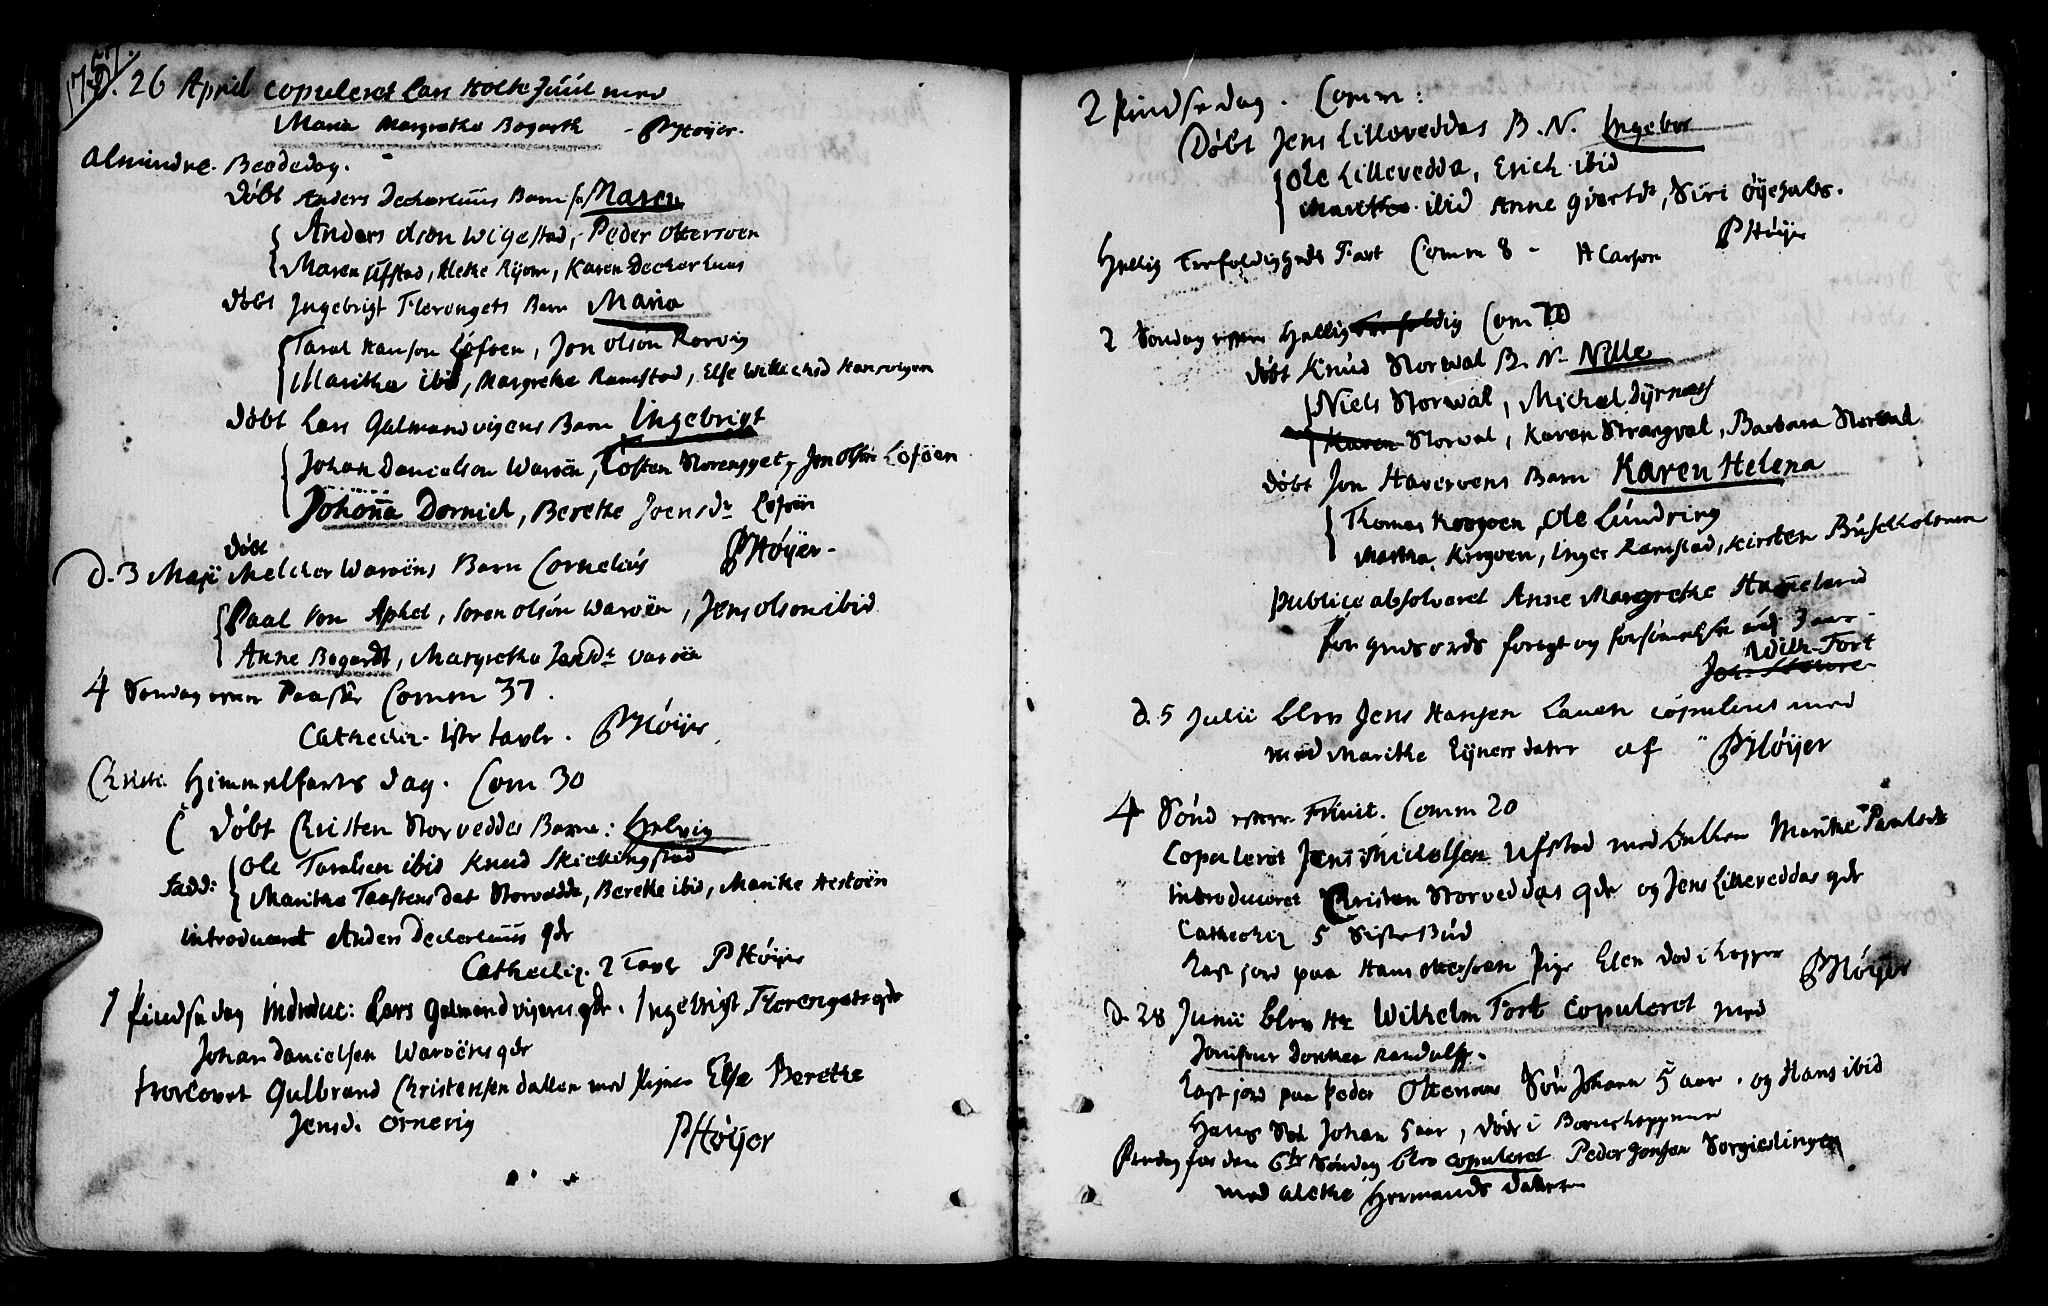 1757.
D. 26 April copuleret Lars Holte Juul med
Maria Margrethe Bogarth - PHöÿer.
Almindre. Beededag.
Döbt Anders Deckerhuus Barn Maren
Anders Olson Wigestad, Peder Ottersoen
Maren Ufstad, Aleke Rijom, Karen Deckerhuus
döbt Ingebrigt Flerengets Barn Maria
Taral Hanson Löföen, Jon olsön Rørvig
Marithe ibid, Margrethe Ramstad, Else Willichsd
Döbt Lars Galmandvigens Barn Ingebrigt
Johan Danielson Waröen, Tosten Storengget, Jon olsön Löföen
Johanna Dornick, Berethe Joensdr Löföen
döbt
D. 3 Maji Melcher Waröens Barn Cornelius PHöÿer.
Paal von Aphel, Soren olsön Waröen, Jens olson ibid
Anne Bogardt, Margrethe Jensdr Waröen
4 Söndag efter Paaske Comm 37.
Cathechiz. 1ste tavle. PHöÿer
Christi Himmelfarts dag. Com 30
Döbt Christen Storveddes Barn: Helvig
Fadd: Ole Taralsen ibid Knud Skichingstad
Marithe Taastensdat Storvedde, Berethe ibid, Marithe Hestöen
introduceret Anders Deckerhuus qde
Cathechiz. 2 Tavl PHöÿer
1 Pindse dag introduc: Lars Galmandvigens qde. Ingebrigt Flerengets qde
Johan Danielsen Waröens qde
trolovet Gulbrand Christensen dallen med Pigen Else Berethe
Jensd. Ornevig
PHöÿer
2 Pindse dag. Comm:
Döbt Jens Lilleveddas B. N. Ingebor
Ole Lillevedda, Erich ibid
Marithe ibid Anne Qvartdt, Siri Öÿehals.
PHöÿer
Hellig Trefoldigheds Fest Comm 8 - H Carsen
2 Söndag efter Hellig Trefoldig Com 70
döbt Knud Storwal B. N. Nille
Niels Storwal, Michel Dÿrnes
Karen Storval, Karen Strangval, Barbara Storval
döbt Jon Havervens Barn Karen Helena
Thomas Krogöen, Ole Lundring
Martha Krogöen, Inger Ramstad, Kirsten Buschholmen
publice absolveret Anne Margrethe Hammeland
for guds ords foragt og forsömmelse udj 3 aar
Wilh. Tort
D. 5 Julii blev Jens Hansen Lauen copuleret med
med Marithe Eÿners dater af PHöÿer
4 Sönd efter Trinit. Comm 20
Copuleret Jens Nicholsen Ufstad med Enken Marithe Paulsdr
introduceret Christen Storveddas qde og Jens Lilleveddas qde
Cathechiz 5 Siste Bud
Kast jord paa Hans Ottersoens Pige Elen död i Kopper PHöÿer
D. 28 Junii blev Hr Wilhelm Tort copuleret med
Jomfrue Dorthea Randulff.
Kast jord paa Peder Ottersens Sön Johann 5 aar. og Hans ibid
Hans Sön Johan 5 aar, döde i Bornekopperne
Fredag for den 6te Söndag blev copuleret Peder Jonsen Sorgiedlingen
med Alethe Hermands dater